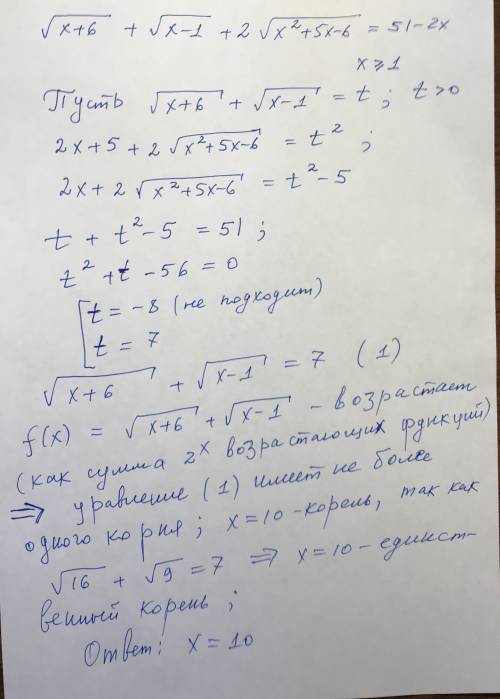 √(x+6) + √(x-1) + 2√(x²+5x-6) = 51-2x
x ⩾ 1
Пусть √(x+6) + √(x-1) = t; t>0
2x+5 + 2√(x²+5x-6) = t²;
2x + 2√(x²+5x-6) = t²-5
t + t²-5 = 51;
t² + t - 56 = 0
[t = -8 (не подходит)
t = 7
√(x+6) + √(x-1) = 7 (1)
f(x) = √(x+6) + √(x-1) - возрастает
(как сумма 2х возрастающих функций)
⇒ уравнение (1) имеет не более
одного корня; x=10 - корень, так как
√16 + √9 = 7 ⇒ x=10 - единст-
венный корень;
Ответ: x = 10